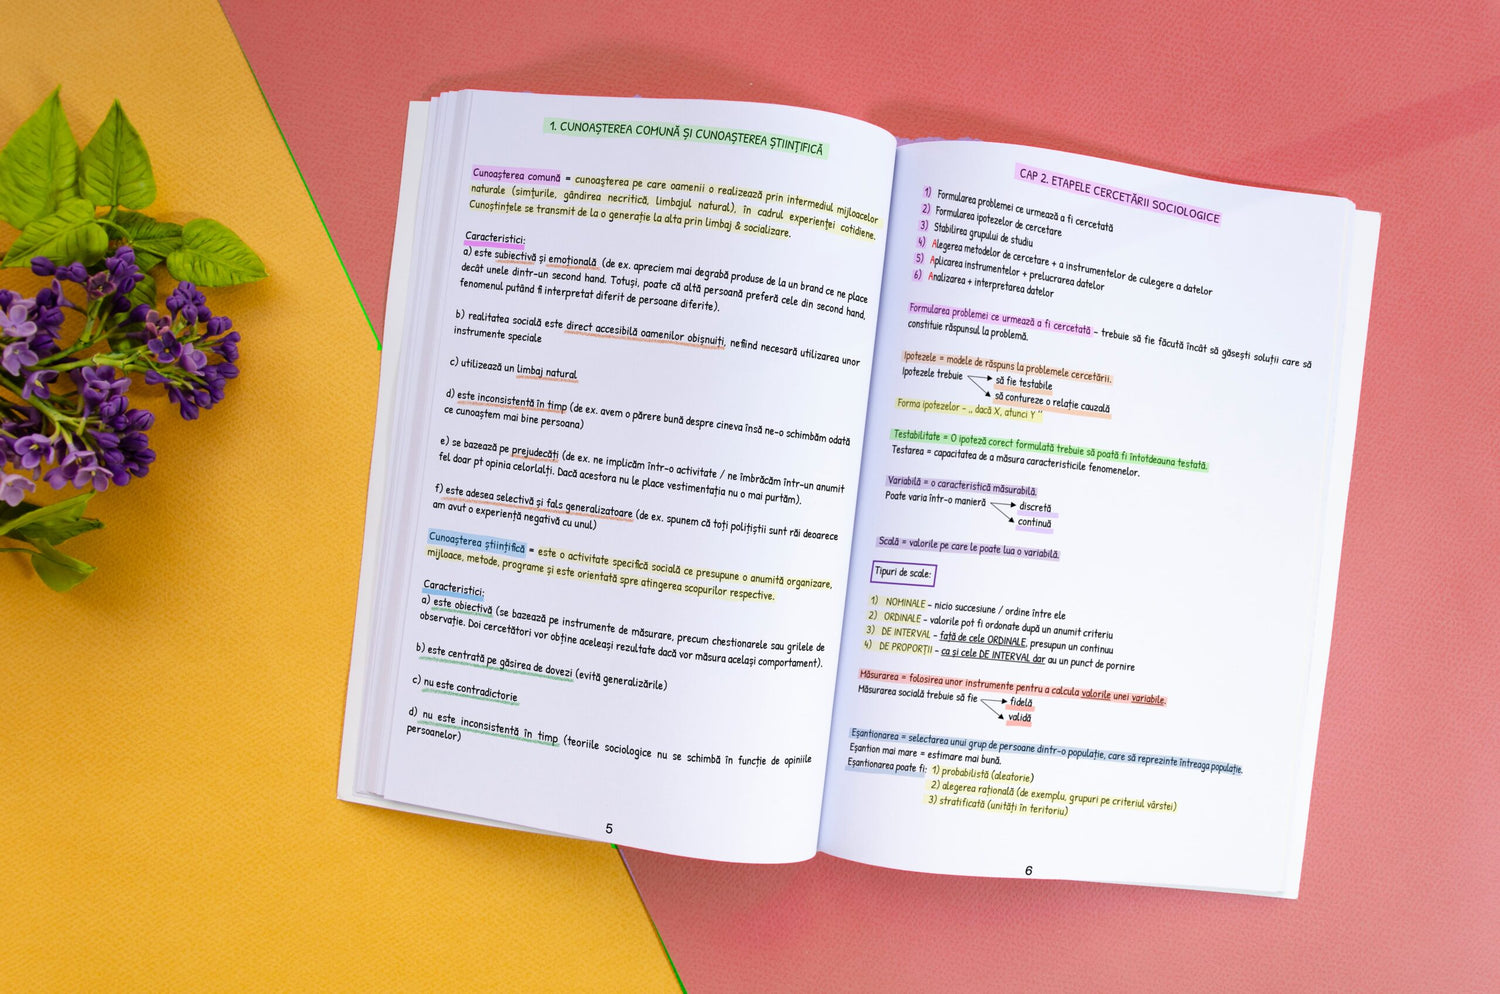 1. CUNOAȘTEREA COMUNĂ ȘI CUNOAȘTEREA ȘTIINȚIFICĂ
Cunoașterea comună = cunoașterea pe care oamenii o realizează prin intermediul mijloacelor
naturale (simțurile, gândirea necritică, limbajul natural), în cadrul experienței cotidiene.
Cunoștințele se transmit de la o generație la alta prin limbaj & socializare.
Caracteristici:
a) este subiectivă și emoțională (de ex. apreciem mai degrabă produse de la un brand ce ne place
decât unele dintr-un second hand. Totuși, poate că altă persoană preferă cele din second hand,
fenomenul putând fi interpretat diferit de persoane diferite).
b) realitatea socială este direct accesibilă oamenilor obișnuiți, nefiind necesară utilizarea unor
instrumente speciale
c) utilizează un limbaj natural
d) este inconsistentă în timp (de ex. avem o părere bună despre cineva însă ne-o schimbăm odată
ce cunoaștem mai bine persoana)
e) se bazează pe prejudecăți (de ex. ne implicăm într-o activitate / ne îmbrăcăm într-un anumit
fel doar pt opinia celorlalți. Dacă acestora nu le place vestimentația nu o mai purtăm).
f) este adesea selectivă și fals generalizatoare (de ex. spunem că toți polițiștii sunt răi deoarece
am avut o experiență negativă cu unul)
Cunoașterea științifică = este o activitate specifică socială ce presupune o anumită organizare,
mijloace, metode, programe și este orientată spre atingerea scopurilor respective.
Caracteristici:
a) este obiectivă (se bazează pe instrumente de măsurare, precum chestionarele sau grilele de
observație. Doi cercetători vor obține aceleași rezultate dacă vor măsura același comportament).
b) este centrată pe găsirea de dovezi (evită generalizările)
c) nu este contradictorie
d) nu este inconsistentă în timp (teoriile sociologice nu se schimbă în funcție de opiniile
persoanelor)
5
CAP 2. ETAPELE CERCETĂRII SOCIOLOGICE
1) Formularea problemei ce urmează a fi cercetată
2) Formularea ipotezelor de cercetare
3) Stabilirea grupului de studiu
4) Alegerea metodelor de cercetare + a instrumentelor de culegere a datelor
5) Aplicarea instrumentelor + prelucrarea datelor
6) Analizarea + interpretarea datelor
Formularea problemei ce urmează a fi cercetată - trebuie să fie făcută încât să găsești soluții care să
constituie răspunsul la problemă.
Ipotezele = modele de răspuns la problemele cercetării.
Ipotezele trebuie să fie testabile
să contureze o relație cauzală
Forma ipotezelor - „ dacă X, atunci Y ”
Testabilitate = O ipoteză corect formulată trebuie să poată fi întotdeauna testată.
Testarea = capacitatea de a măsura caracteristicile fenomenelor.
Variabilă = o caracteristică măsurabilă.
Poate varia într-o manieră discretă
continuă
Scală = valorile pe care le poate lua o variabilă.
Tipuri de scale:
1) NOMINALE - nicio succesiune / ordine între ele
2) ORDINALE - valorile pot fi ordonate după un anumit criteriu
3) DE INTERVAL - față de cele ORDINALE, presupun un continuu
4) DE PROPORȚII - ca și cele DE INTERVAL dar au un punct de pornire
Măsurarea = folosirea unor instrumente pentru a calcula valorile unei variabile.
Măsurarea socială trebuie să fie fidelă
validă
Eșantionarea = selectarea unui grup de persoane dintr-o populație, care să reprezinte întreaga populație.
Eșantion mai mare = estimare mai bună.
Eșantionarea poate fi: 1) probabilistă (aleatorie)
2) alegerea rațională (de exemplu, grupuri pe criteriul vârstei)
3) stratificată (unități în teritoriu)
6